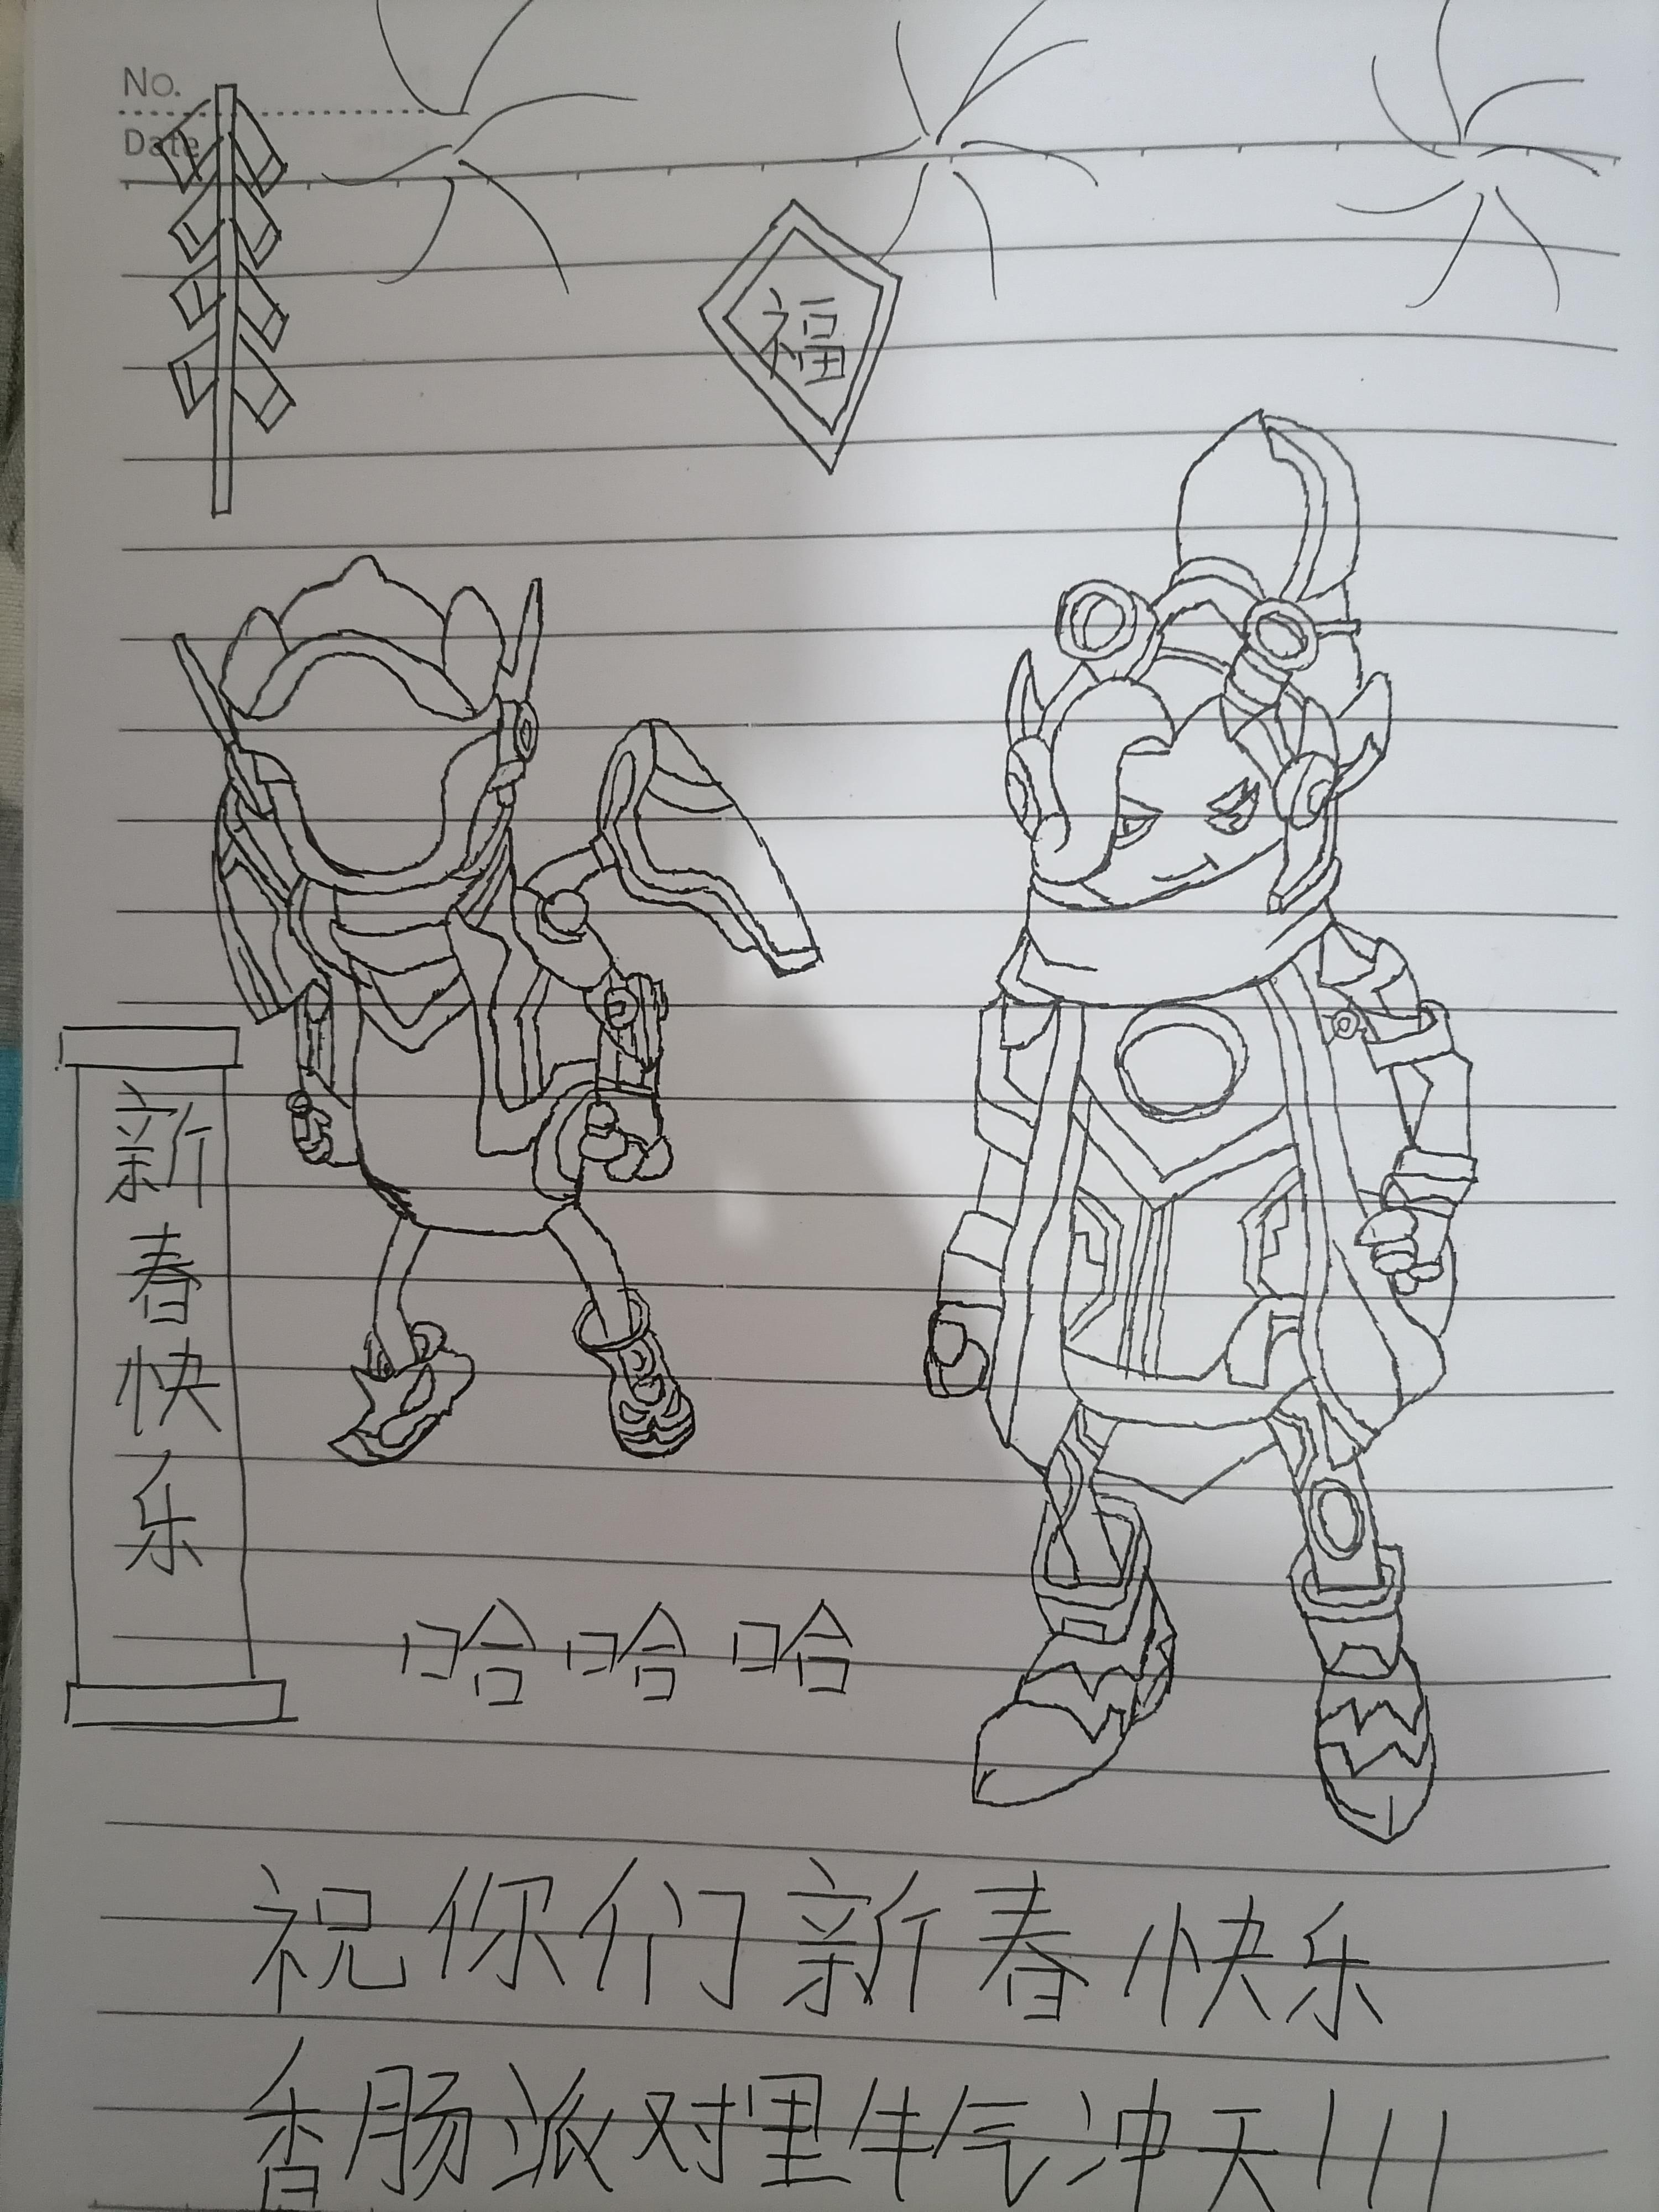 No.
Date
福
新春快乐
哈哈哈
祝你们新春快乐
香肠派对里牛气冲天!!!